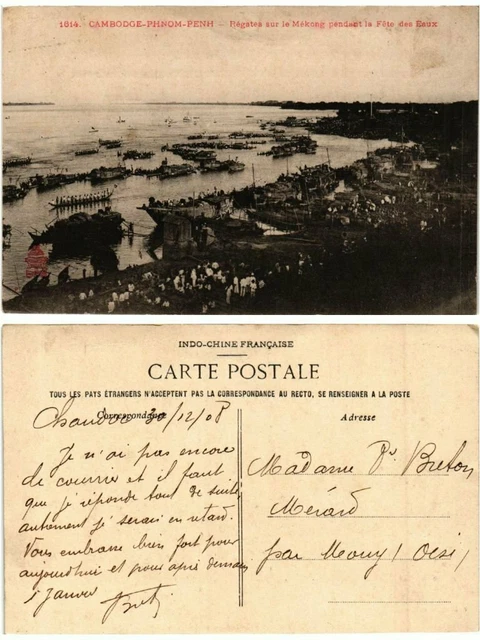 1614. CAMBODGE-PHNOM-PENH — Régates sur le Mékong pendant la Fête des Eaux
INDO-CHINE FRANÇAISE
CARTE POSTALE
TOUS LES PAYS ÉTRANGERS N'ACCEPTENT PAS LA CORRESPONDANCE AU RECTO, SE RENSEIGNER A LA POSTE
Correspondance
30/12/08
Je n'ai pas encore
de courrier et il faut
que je réponde tout de suite
autrement je serai en retard.
Vous embrasse bien fort pour
aujourd'hui et pour après demain
1 Janvier
Adresse
Madame Breton
Mérard
par Mouy (Oise)